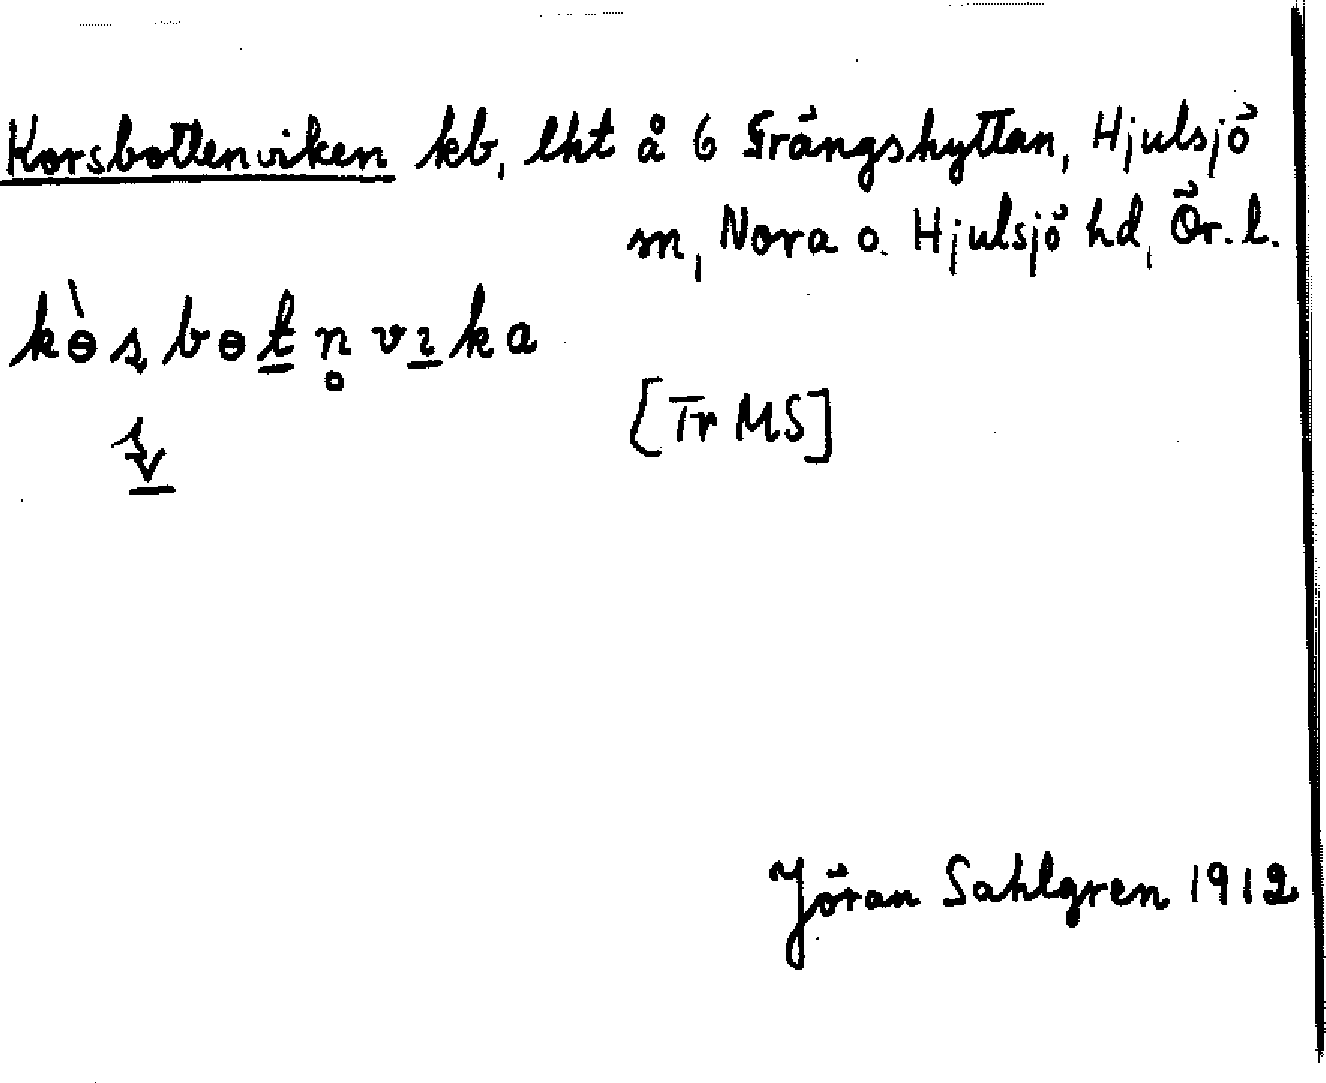 Korsbottenviken kb, lht å 6 Trängshyttan, Hjulsjö
sn, Nora o. Hjulsjö hd, Ör. l.
kɵ̀sbɵtn̥vıka
[Tr MS]
Jöran Sahlgren 1912